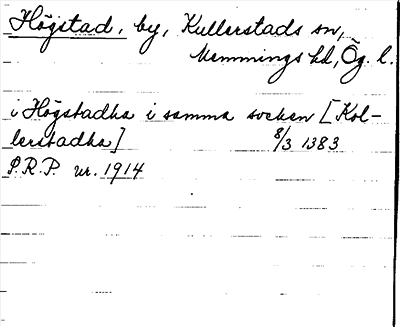 Högstad, by, Kullerstads sn,
Memmings hd, Ög. l.
i Högstadha i samma socken [Kol-
lerstadha] 8/3 1383
S.R.P. nr. 1914